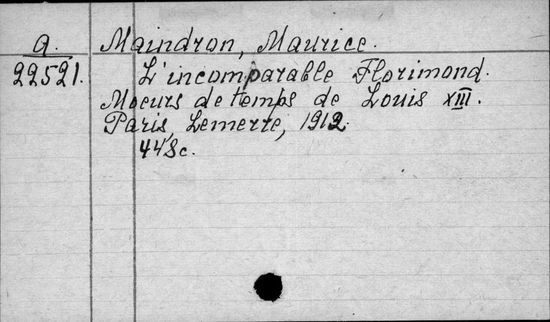 a. Maindron, Maurice.
22521. L'incomparable Florimond.
Moeurs de temps de Louis XIII.
Paris, Lemerre, 1912.
448c.